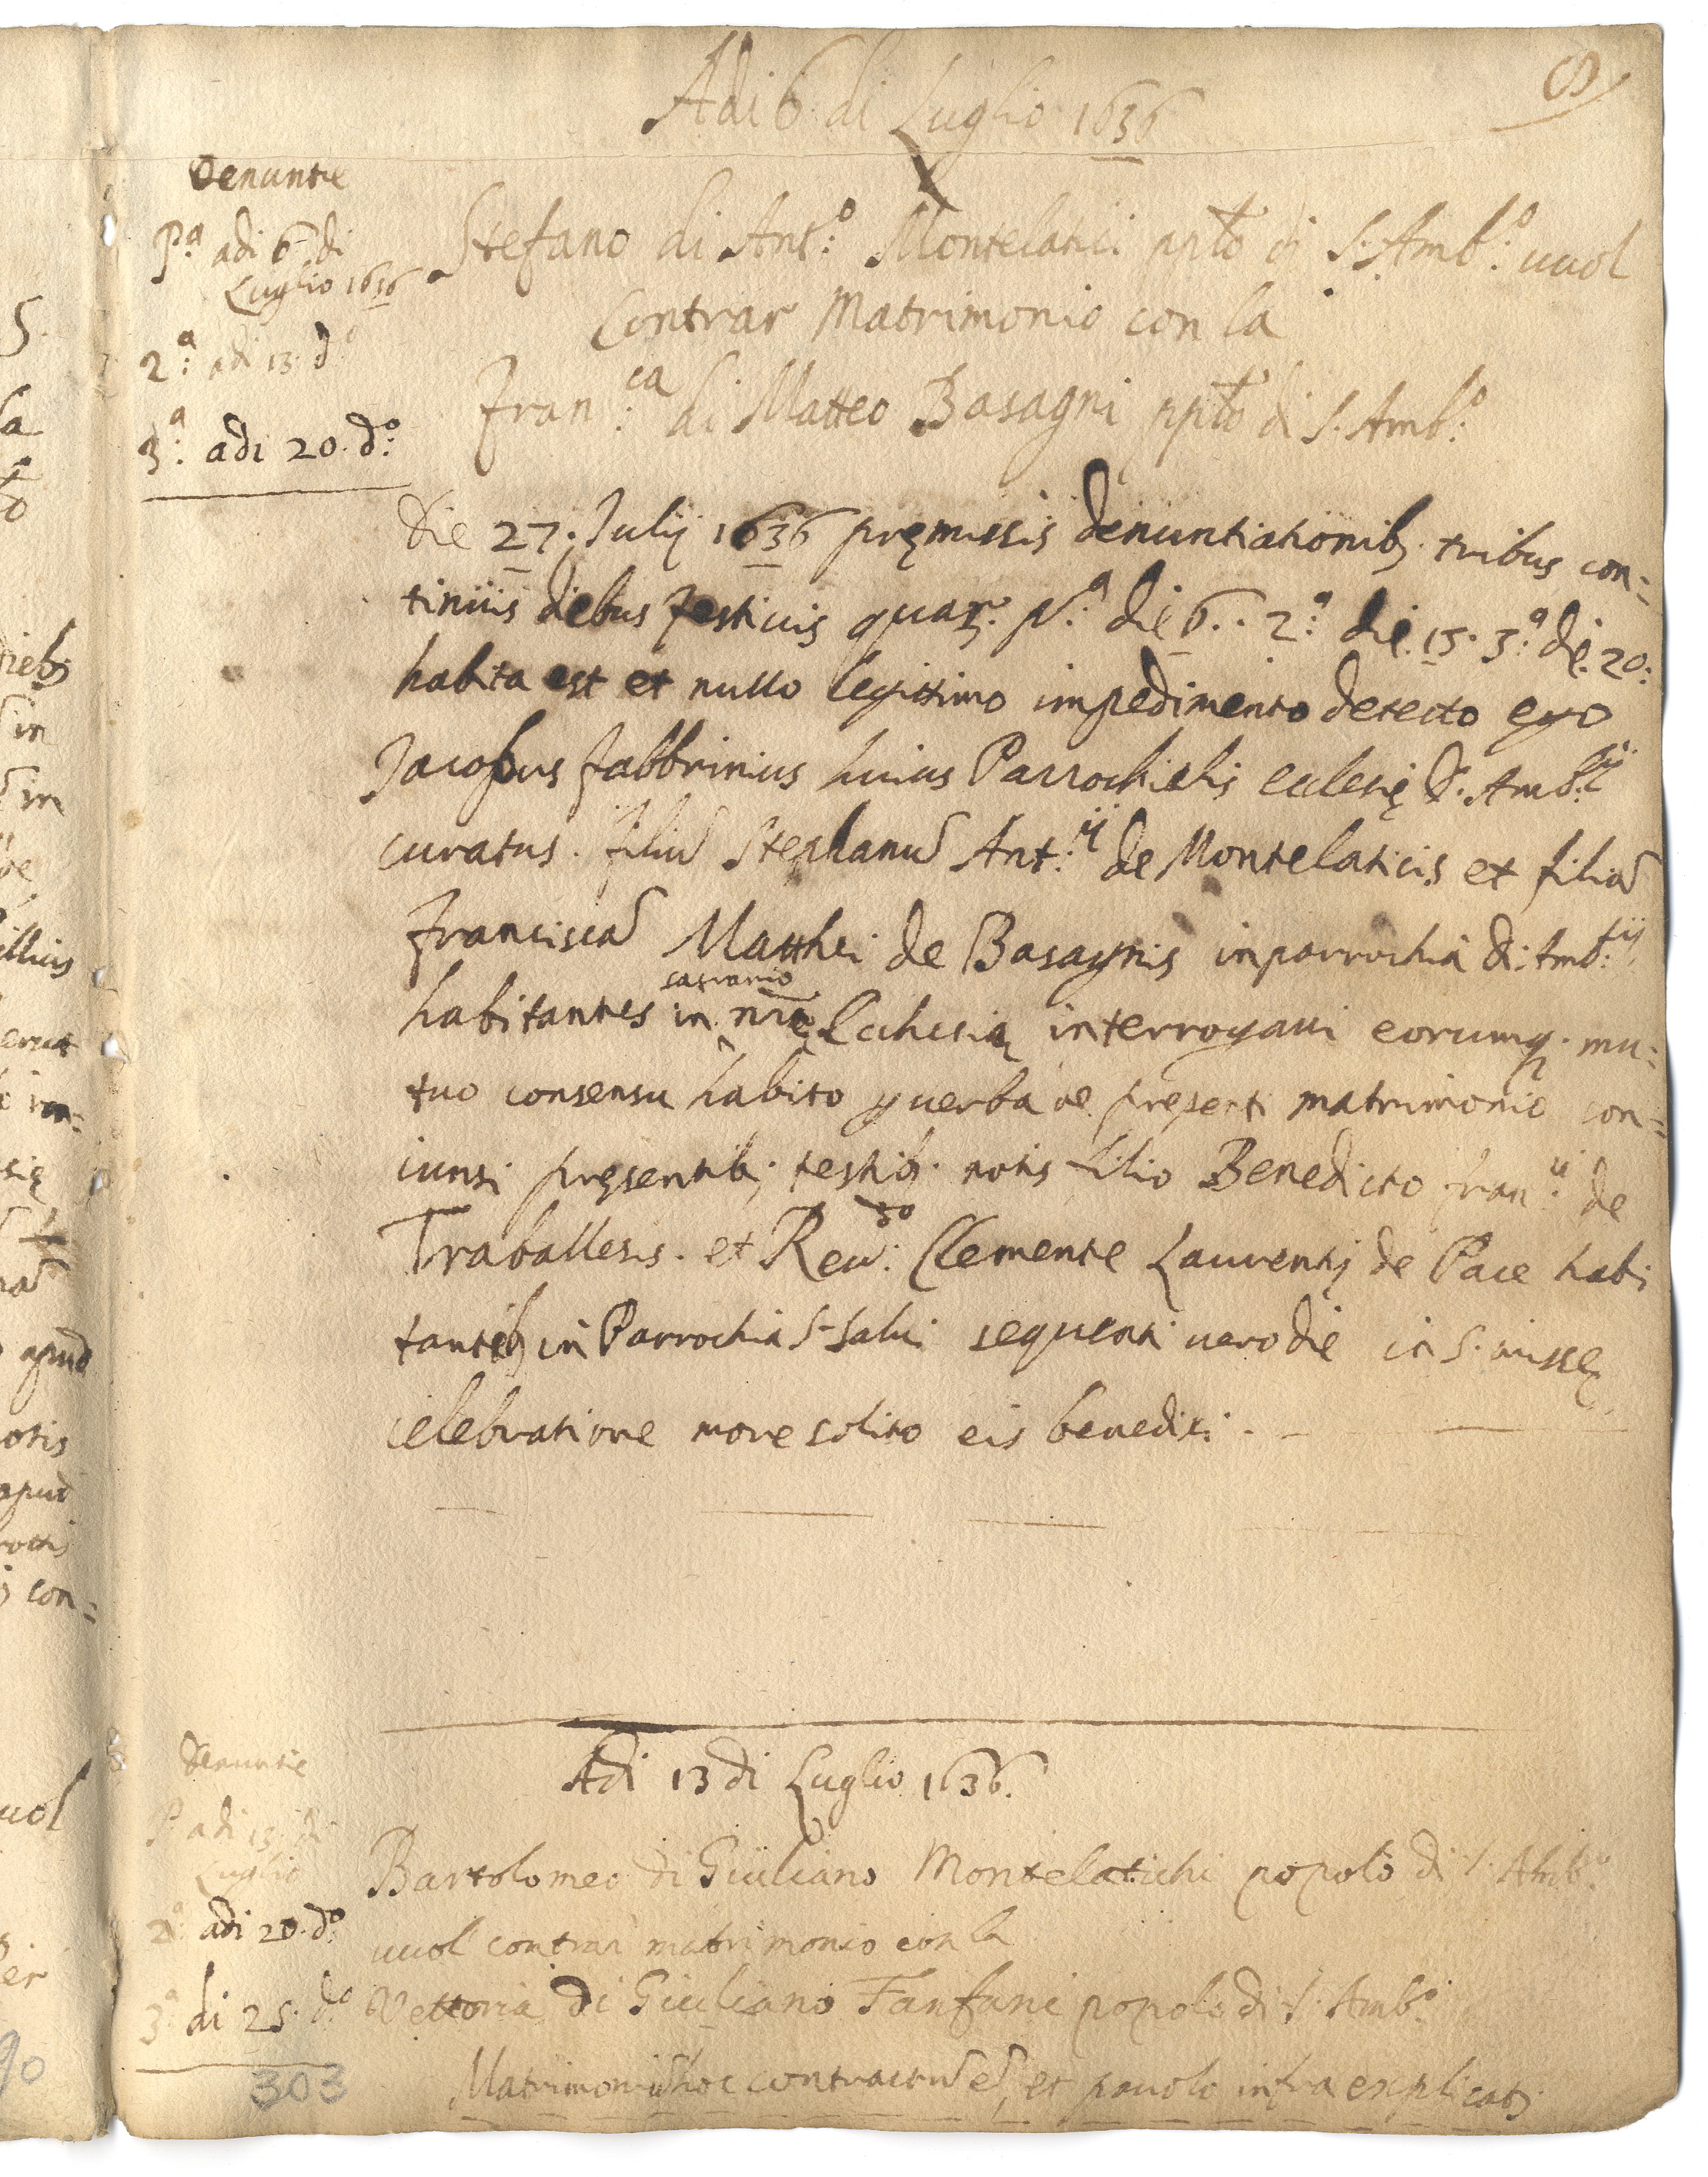 Adi 6 di Luglio 1636
Denuntie
P.ª adi 6 di
Luglio 1636
2.ª adi 13 d.º
3.ª adi 20. d.º
Stefano di Ant.º Montelatici ppto di S. Amb.º vuol
Contrar Matrimonio con la
Fran.ca di Matteo Basagni ppto di S. Amb.º
Die 27. Julij 1636 pręmissis denuntiationib; tribus con=
tinuis diebus festiuis quar. P.ª die 6. 2.ª die 13. 3.ª die. 20.
habita est et nullo legittimo impedimento detecto ego
Jacobus fabbrinius huius Parrochialis eclesię S. Amb.ij
curatus. filiū Stephanū Ant.ij de Montelaticis et filiā
franciscā Matthei de Basagnis in parrochia S. Amb.ij
sacrario
habitantes in nrę Ecclesię interrogaui eorumq. mu=
tuo consensu habito p uerba de presenti matrimonio con=
iunxi pręsentib; testib. notis filio Benedicto fran.ci de
Traballesis. et Reu.do Clemente Laurentij de Pace habi
tantib; in Parrochia S. Salui sequenti uero die in S. missę
celebratione more solito eis benedixi.
Adi 13 di Luglio 1636.
Denuntie
P. adi 13. di
Luglio
2.ª adi 20. d.º
3.ª di 25. d.º
Bartolomeo di Giuliano Montelatichi popolo di S. Amb.º
vuol contrar matrimonio con la
Vettoria di Giuliano Fanfani popolo di S. Amb.º
Matrimoniū hoc contractū ē, et paulo infra explicat;
303